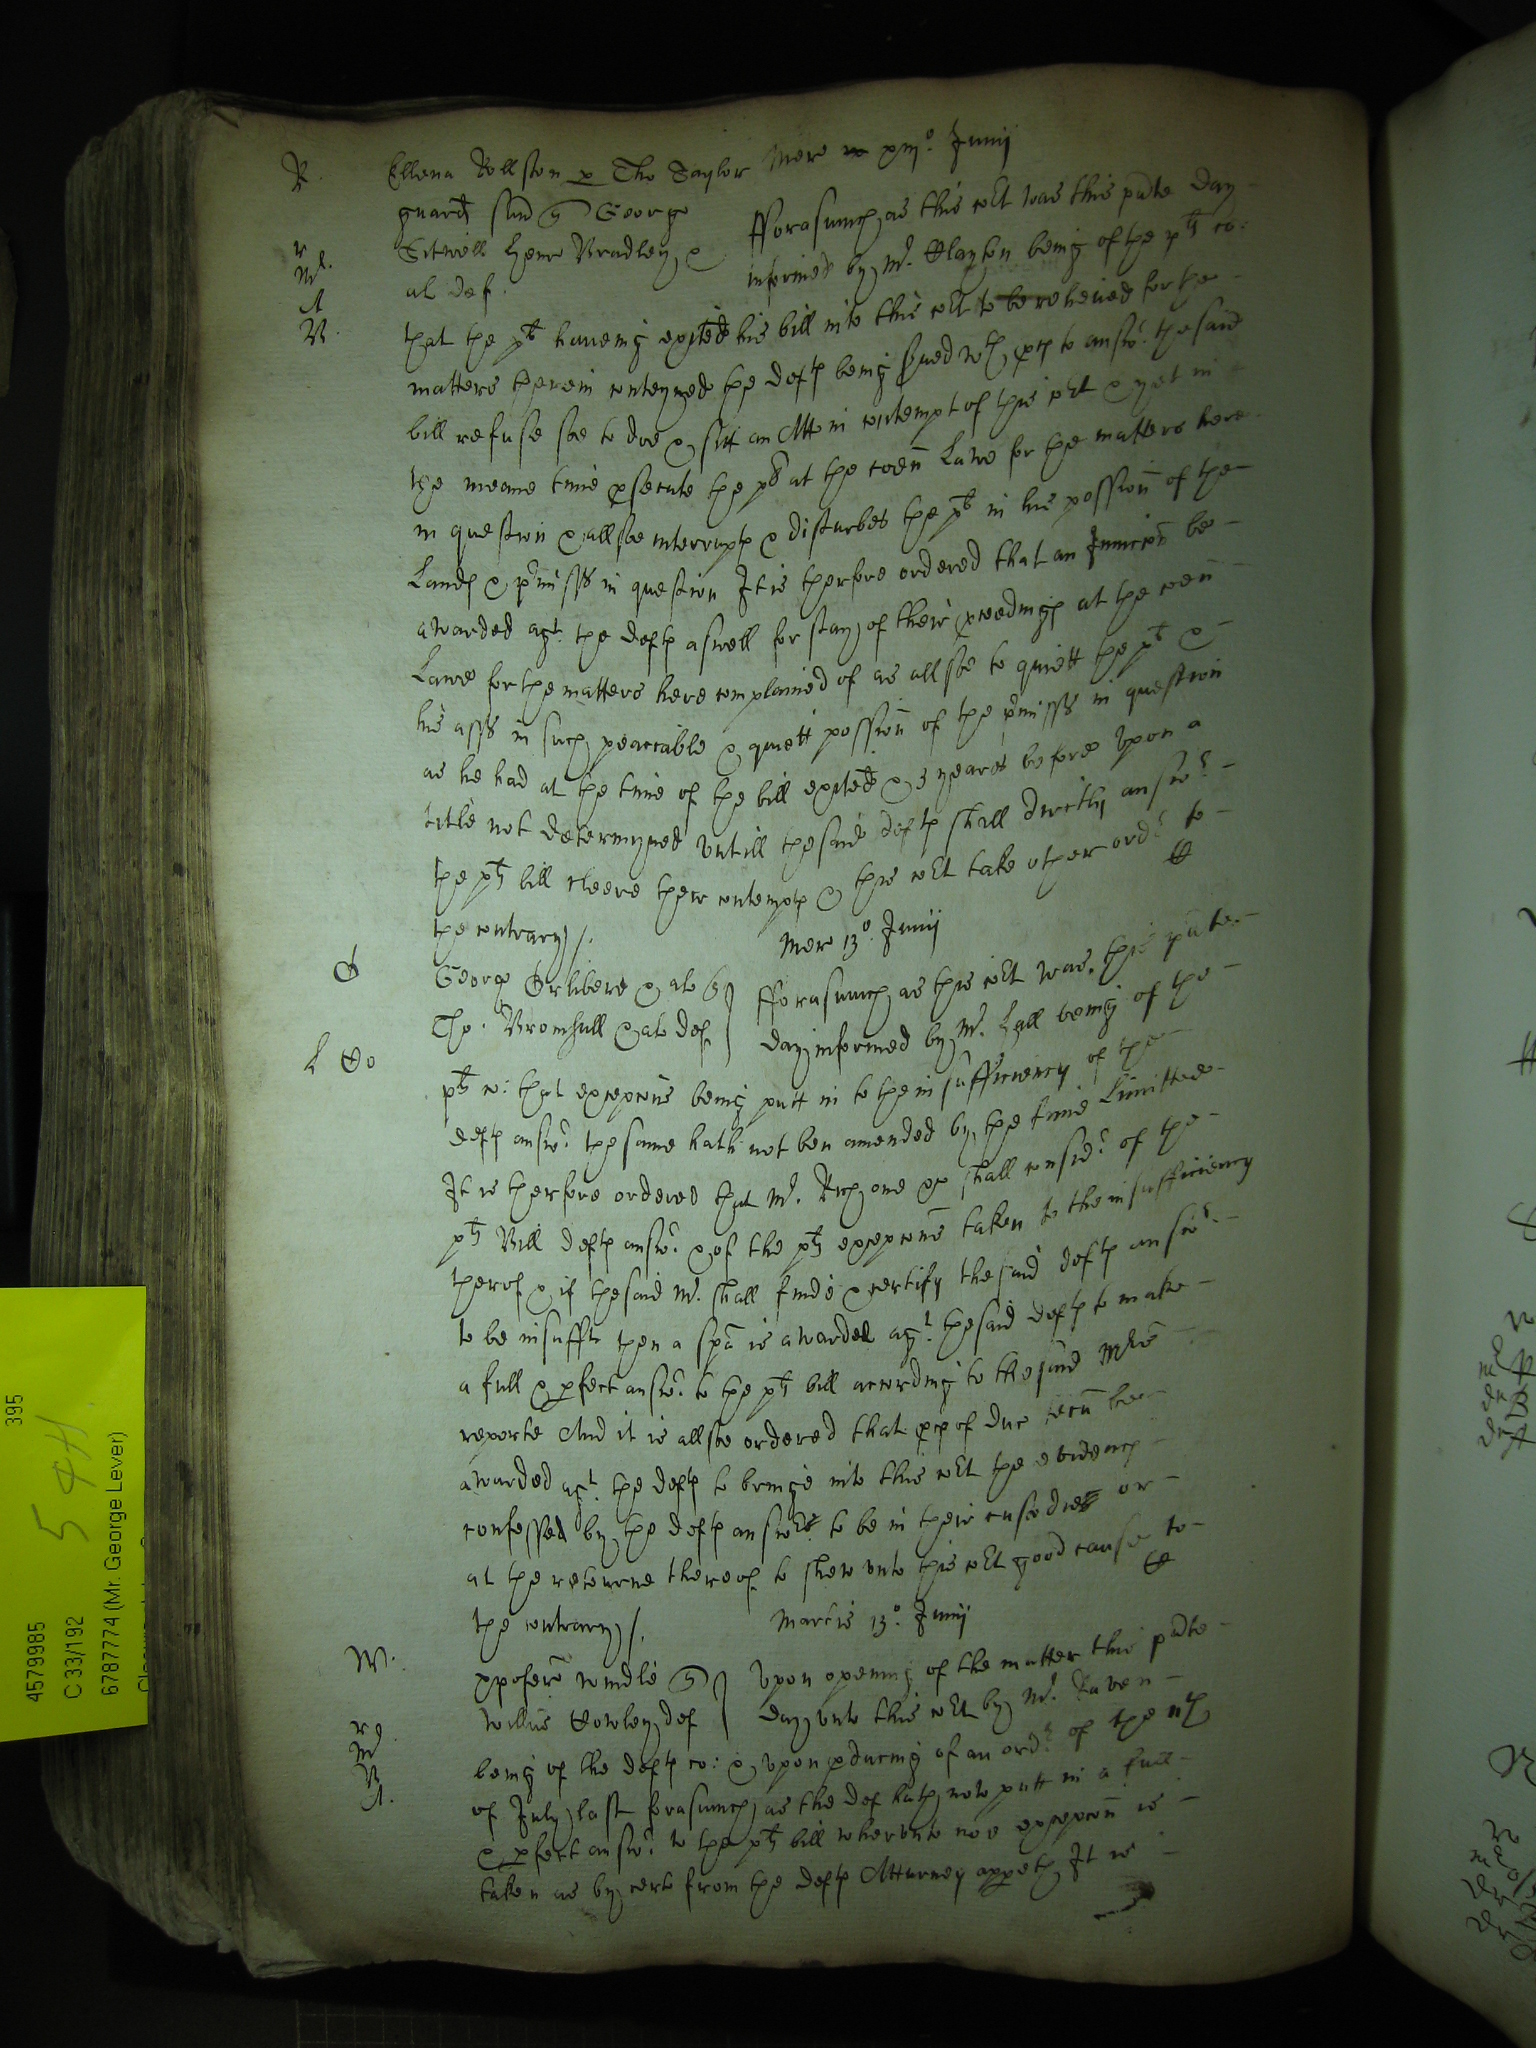 R. Ellena Rollston p Tho Taylor Mere xiij° Junij
guard sūd q George fforasmuch as this cort was this pnte day
r Sitwell henr Bradley &
Mr. al def. informed by Mr. Clayton being of the plt co:
A
B. that the plt haveing exited his bill into this cort to be releived for the
matters therein conteyned the deft being served wth pcs to answr. the said
bill refuse soe to doe & sitt an Atto in contempt of this cort & yet in
the meane time psecute the plt at the coen Lawe for the matters here
in question & allsoe interrupt & disturbes the plt in his possion of the
Lands & pmisss in question It is therfore ordered that an Iniuccon be
awarded agt. the defts aswell for stay of their pceedings at the coen
Lawe for the matters here complained of as allsoe to quiett the plt &
his asss in such peaceable & quiett possion of the pmisss in question
as he had at the time of the bill exited & 3 yeares before upon a
title not determyned untill the said defts shall dirctly answr.
the plts bill cleere their contempts & this cort take other ordr to
the contrary /.
Mer 13° Junij
George Orlibere & als q fforasmuch as this cort was this pnte
Tho. Bromhall & als def day informed by Mr. Hall being of the
plts co: that excepcons being putt in to the insufficiency of the
defts answr. the same hath not ben amended by the time Limitted
It is therfore ordered that Mr. Rich one &c shall considr of the
plts Bill defts answr. & of the plts excepcons taken to the insufficiency
therof & if the said Mr. shall finde & certify the said defts answr.
to be insufft then a spa is awarded agt. the said defts to make
a full & pfect answr. to the plts bill according to the said Mrs
reporte And it is allsoe ordered that pcs of duc tecu bee
awarded agt. the defts to bringe into this cort the evidences
confessed by the defts answrs to be in their custodies or
at the returne thereof to shew unto this cort good cause to
the contrary /.
Martis 13° Junij
W. xpofer Windle q Upon opening of the matter this pnte
Willus Cowley def day unto this cort by Mr. Raven
being of the defts co: & upon pducing of an ordr. of the
of July last forasmuch as the def hath now putt in a full
& pfect answr. to the plts bill wherunto noe excepcon is
taken as by cert from the defts Atturney appeth It is
4579985
C 33/192
6787774 (Mr. George Lever)
395
544